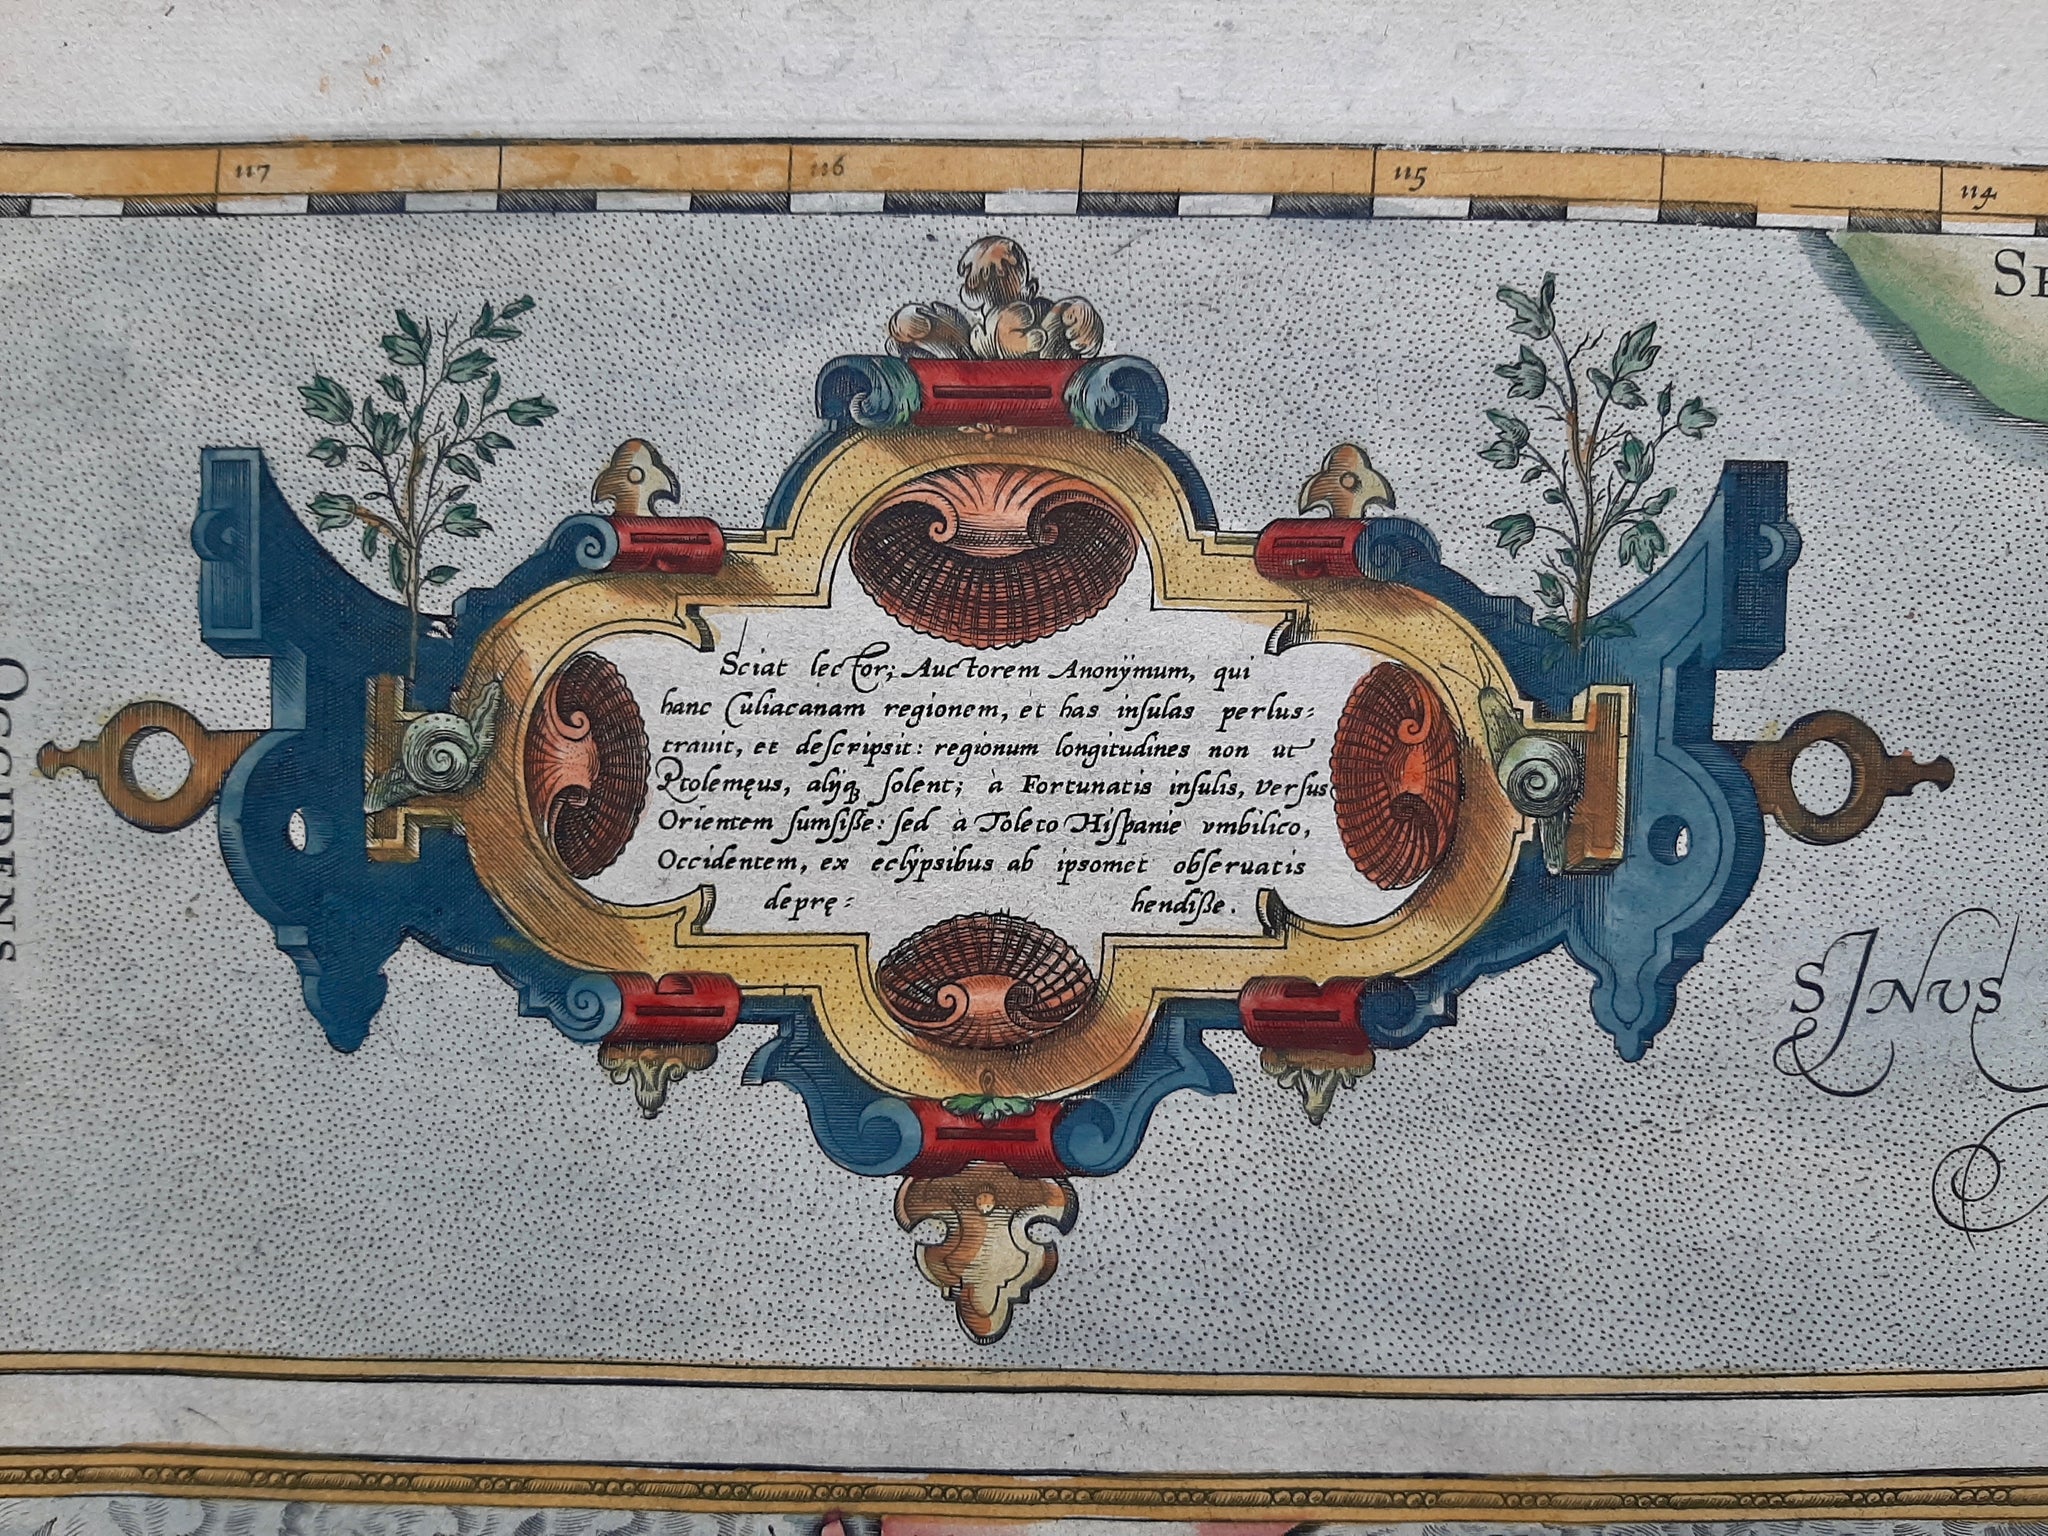 117 116 115 114
Sciat lector; Auctorem Anonÿmum, qui
hanc Culiacanam regionem, et has insulas perlus=
trauit, et descripsit: regionum longitudines non ut
Ptolemęus, alijq₃ solent; à Fortunatis insulis, versus
Orientem sumsiße: sed à Toleto Hispanie vmbilico,
Occidentem, ex eclÿpsibus ab ipsomet obseruatis
deprę= hendiße.
OCCIDENS
SINVS